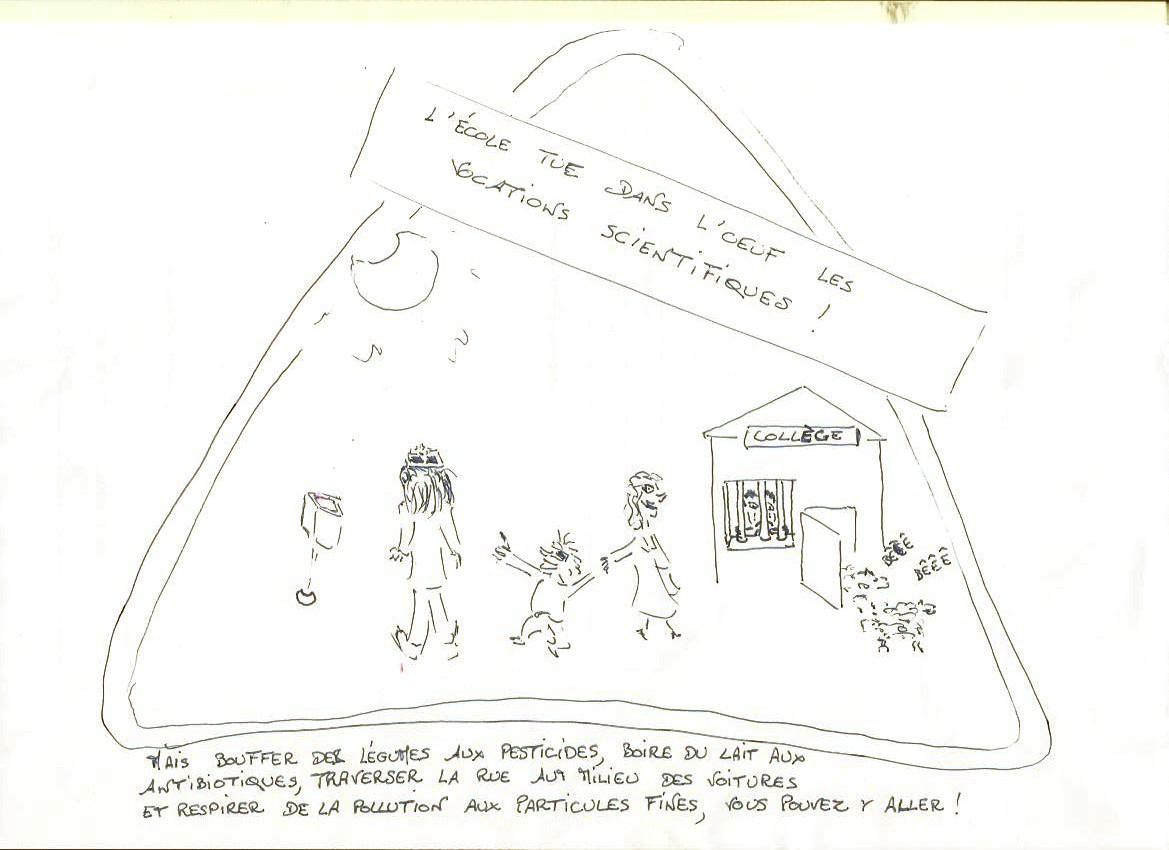 L'ÉCOLE TUE DANS L'OEUF LES
VOCATIONS SCIENTIFIQUES !
COLLÈGE
BÊÊÊ
BÊÊÊ
MAIS BOUFFER DES LÉGUMES AUX PESTICIDES, BOIRE DU LAIT AUX
ANTIBIOTIQUES, TRAVERSER LA RUE AU MILIEU DES VOITURES
ET RESPIRER DE LA POLLUTION AUX PARTICULES FINES, VOUS POUVEZ Y ALLER !